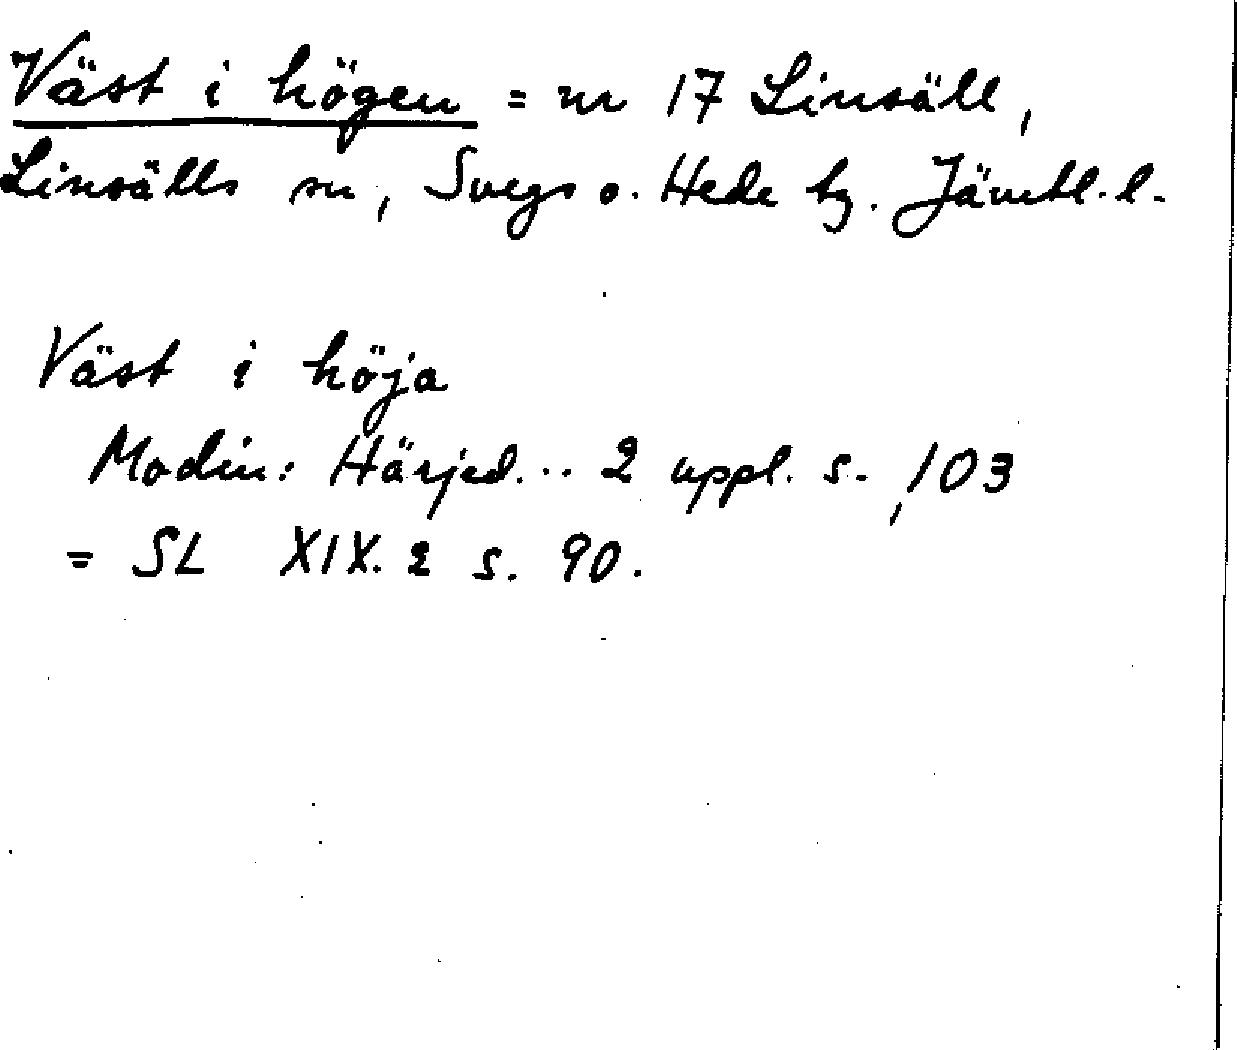 Väst i högen = nr 17 Linsäll,
Linsälls sn, Svegs o. Hede tg. Jämtl. l.
Väst i höja
Modin: Härjed... 2 uppl. s. 103
= SL XIX. 2 s. 90.